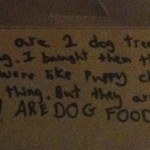 are 2 dog trea
g. I bought them th
were like puppy ch
thing. But they ar
! ARE DOG FOOD